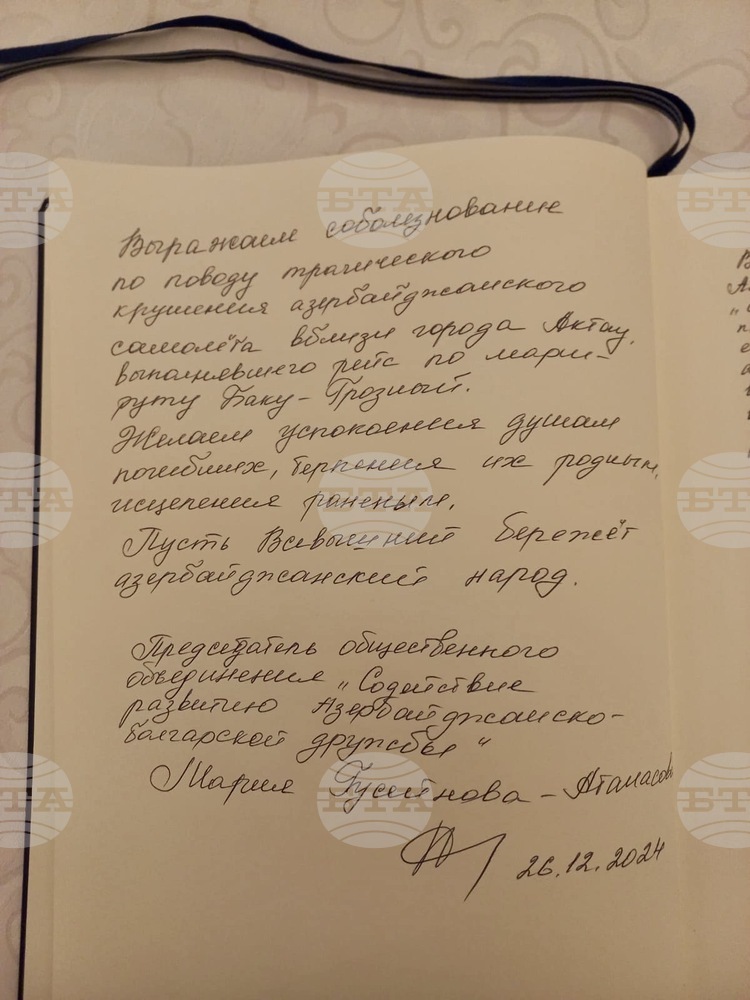 Выражаем соболезнование
по поводу трагического
крушения азербайджанского
самолёта вблизи города Актау,
выполнявшего рейс по марш-
руту Баку - Грозный.
Желаем успокоения душам
погибших, терпения их родным,
исцеления раненым.
Пусть Всевышний бережёт
азербайджанский народ.
Председатель общественного
объединения „Содействие
развитию Азербайджанско-
болгарской дружбы“
Мария Гусейнова - Атанасова
26.12.2024
БТА
БТА
БТА
БТА
БТА
БТА
БТА
БТА
БТА